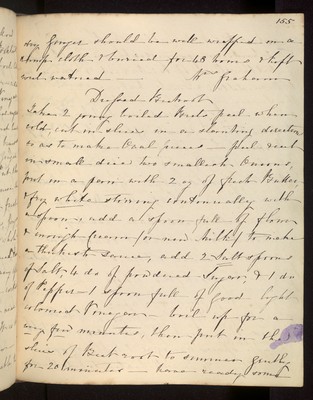 155
dry Ginger should be well wrapped in a
damp cloth & buried for 48 hours & kept
well watered — Mrs Graham
Beetroot
Take 2 young boiled Beets peel when
cold, cut in slices in a slanting direction
so as to make Oval pieces — peel & cut
in small dice two small Onions,
put in a pan with 2 oz of fresh Butter,
& fry white stirring continually with
a spoon; add a spoon full of flour
& enough Cream (or new Milk) to make
a thickish sauce, add 2 Salt spoons
of Salt, 4 do of powdered Sugar, & 1 do
of Pepper — 1 spoon full of good light
Vinegar — boil up for a
very few minutes, then put in the
slices of Beet root to simmer gently
for 20 minutes — have ready some